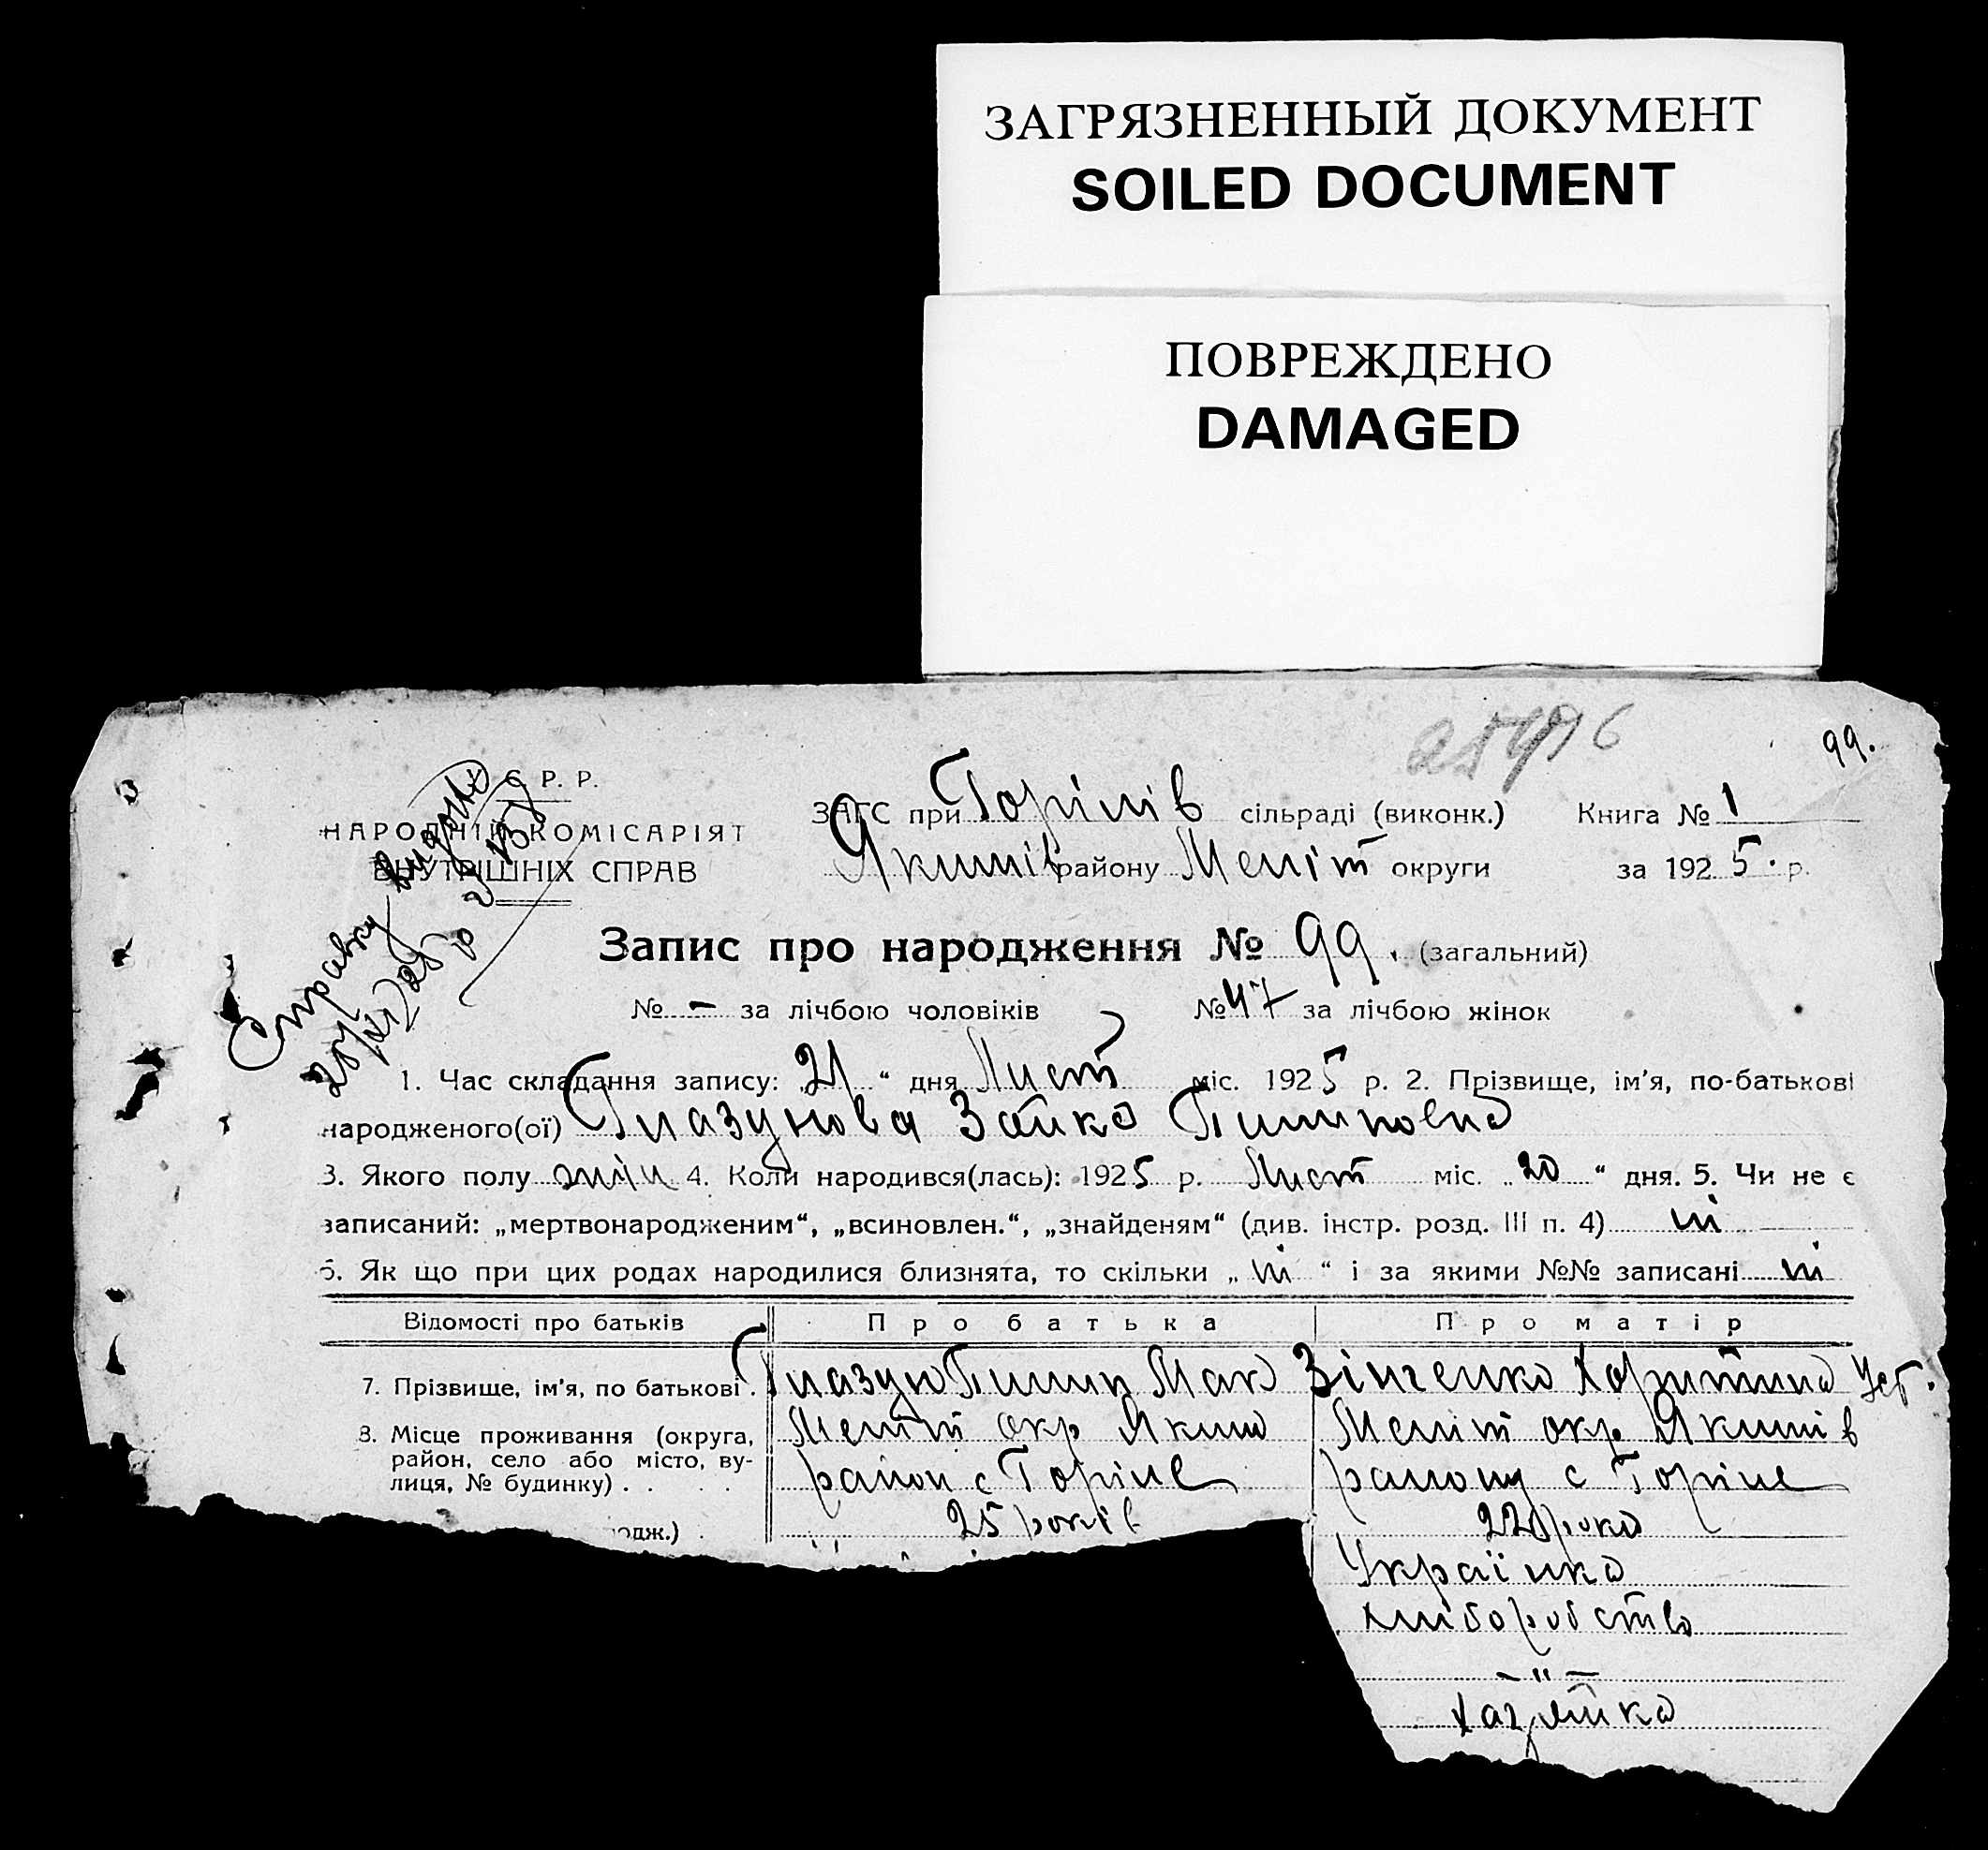 ЗАГРЯЗНЕННЫЙ ДОКУМЕНТ
SOILED DOCUMENT
ПОВРЕЖДЕНО
DAMAGED
99.
У. С. Р. Р.
НАРОДНІЙ КОМІСАРІЯТ
ВНУТРІШНІХ СПРАВ
Справку видоно
ЗАГС при Горілів сільраді (виконк.) Книга № 1
Якимів району Меліт округи за 1925 р.
Запис про народження № 99. (загальний)
№ - за лічбою чоловіків № 47 за лічбою жінок
1. Час складання запису: „21“ дня Лист міс. 1925 р. 2. Прізвище, ім’я, по-батькові
народженого(ої) Глазунова
3. Якого полу 4. Коли народився(лась): 1925 р. Лист міс. „20“ дня. 5. Чи не є
записаний: „мертвонародженим“, „всиновлен.“, „знайденям“ (див. інстр. розд. III п. 4) ні
6. Як що при цих родах народилися близнята, то скільки „ні“ і за якими №№ записані ні
Відомості про батьків Про батька Про матір
7. Прізвище, ім’я, по батькові. Глазун Пилип Мак Зінченко Хоритина Уст.
8. Місце проживання (округа, район, село або місто, вулиця, № будинку) . . . .
Меліт окр Яким
район с Горіле
Меліт окр. Якимів
району с Горіле
одж.) . 25 років 22 рока
Українка
хліборобство
— „ —
хазяйка